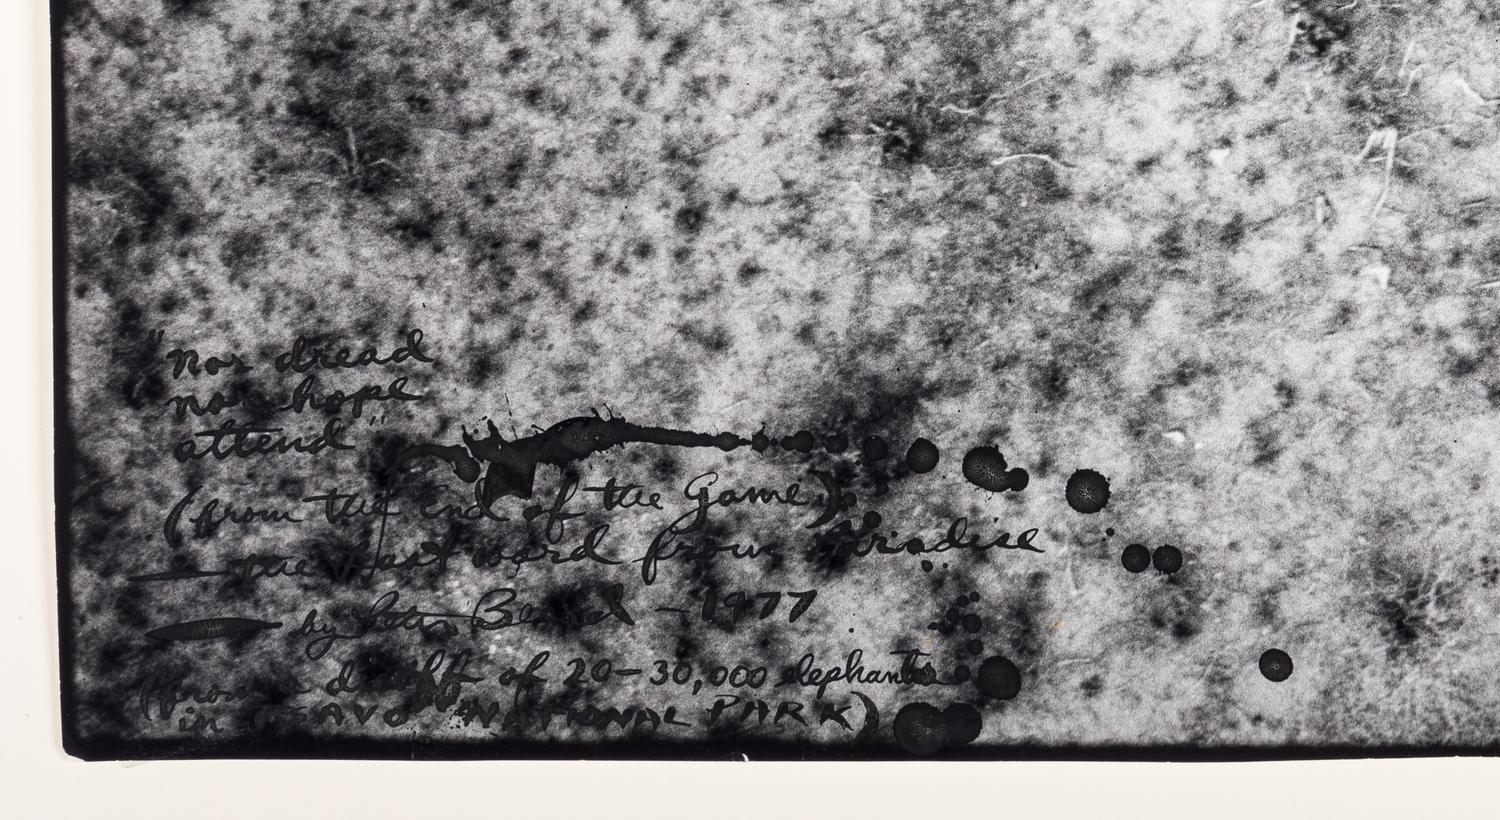 "Nor dread
nor hope
attend"
(from the End of the Game)
— the Last word from Paradise
by Peter Beard — 1977
(from a dieoff of 20–30,000 elephants
in TSAVO NATIONAL PARK)